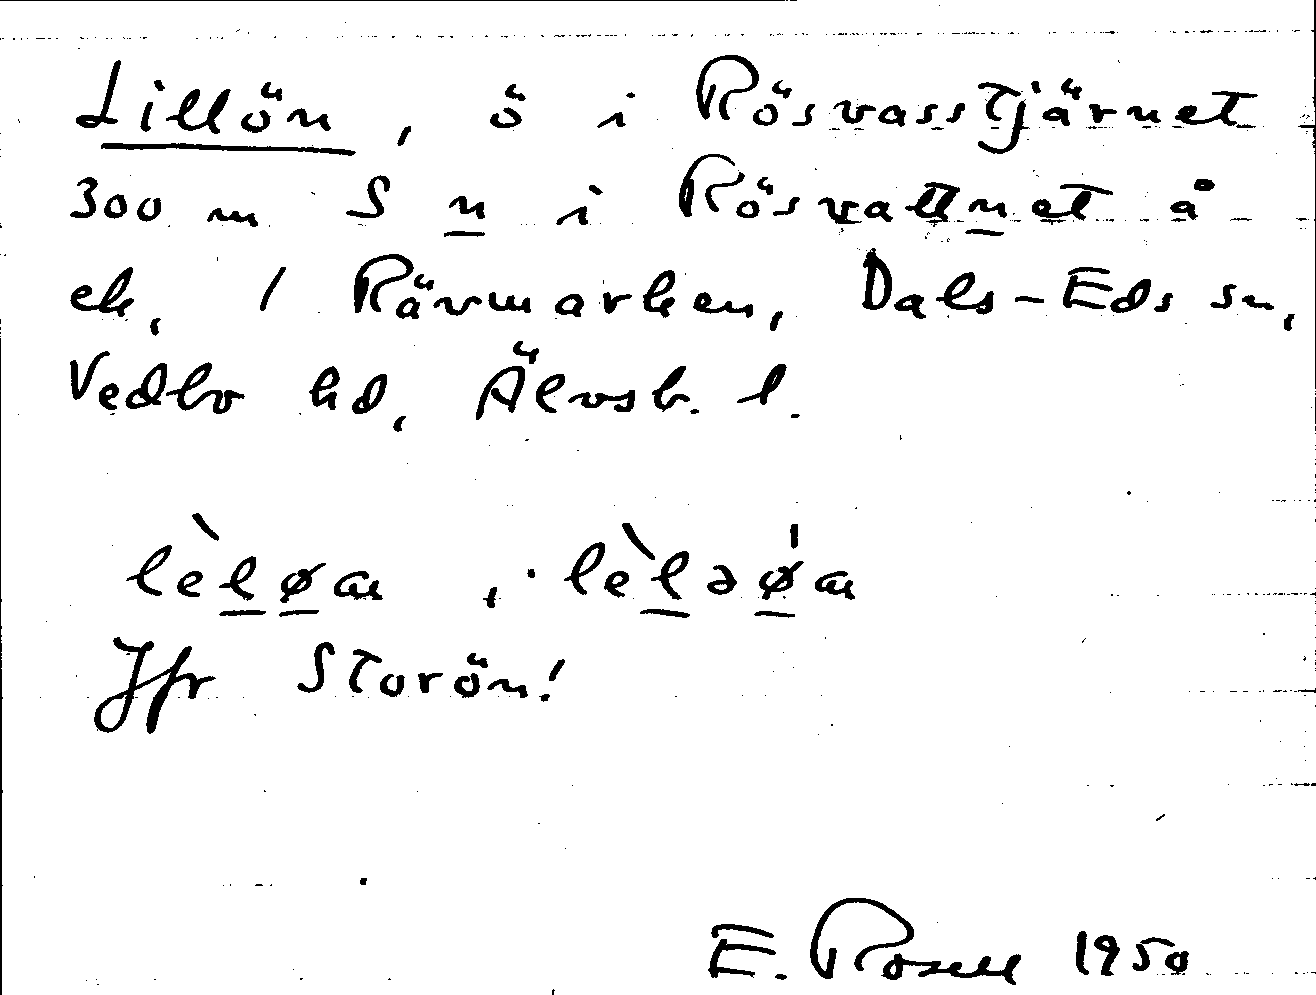 Lillön, ö i Rösvasstjärnet
300 m S n i Rösvattnet å
ek, 1 Rävmarken, Dals-Eds sn,
Vedbo hd, Älvsb. l.
lèløn, lèlə̀øn
Jfr Storön!
E. Rosell 1950